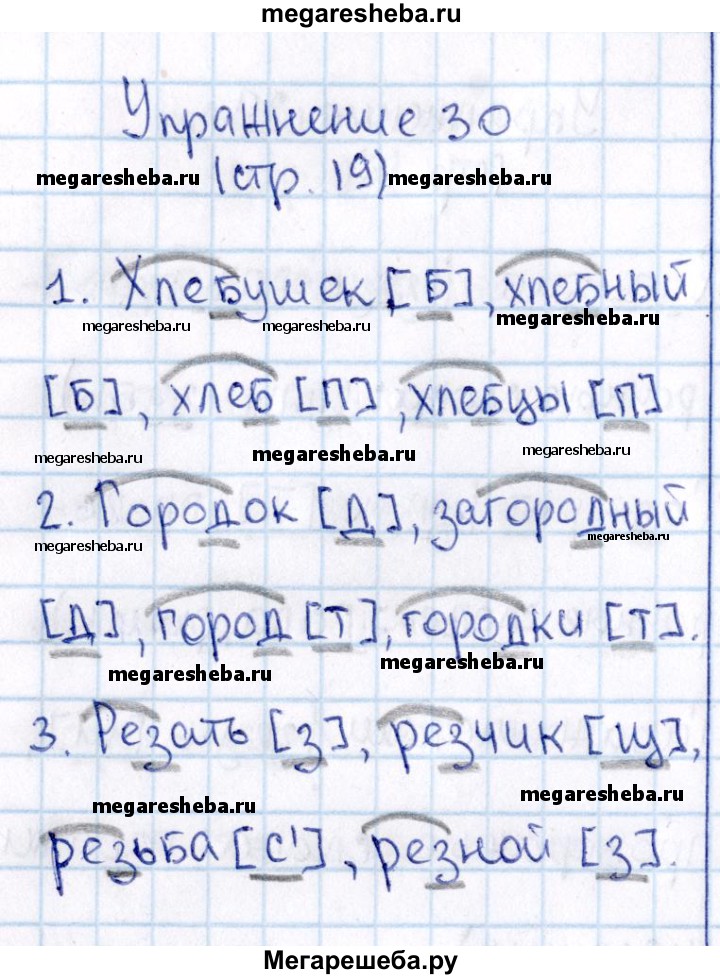 megaresheba.ru
Упражнение 30
megaresheba.ru (стр. 19) megaresheba.ru
1. Хлебушек [Б], хлебный
megaresheba.ru megaresheba.ru megaresheba.ru
[Б], хлеб [П], хлебцы [П]
megaresheba.ru megaresheba.ru megaresheba.ru
2. Городок [Д], загородный
megaresheba.ru megaresheba.ru
[Д], город [Т], городки [Т].
megaresheba.ru megaresheba.ru
3. Резать [З], резчик [Щ],
megaresheba.ru megaresheba.ru
резьба [С'], резной [З].
Мегарешеба.ру